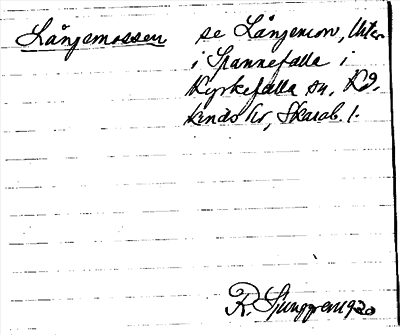 Långemossen se Långemon, Utter
i Spannefalla i
Kyrkefalla sn, Kå-
kinds hd, Skarab. l.
R. Ljunggren 1920